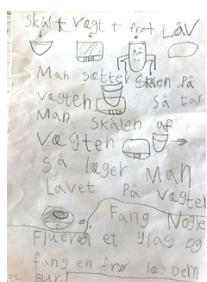 Skål + vægt + frø + LåV
Man sætter Skålen På
Vægten så tar
Man Skålen af
Vægten
så læger Man
Lavet På Vægten
Fang Nogle
Fluer i et glas og
fang en frø læg Dem
i Bur